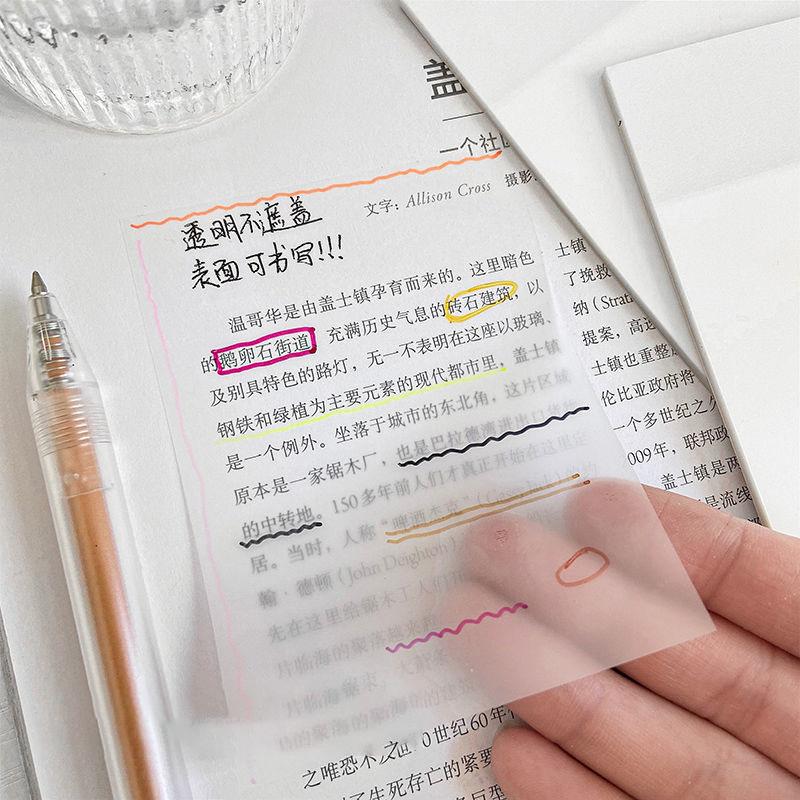 盖
一个社区
文字：Allison Cross 摄影：
透明不遮盖
表面可书写!!!
温哥华是由盖士镇孕育而来的。这里暗色
的鹅卵石街道 充满历史气息的砖石建筑，以
及别具特色的路灯，无一不表明在这座以玻璃、
钢铁和绿植为主要元素的现代都市里，盖士镇
是一个例外。坐落于城市的东北角，这片区域
原本是一家锯木厂，也是巴拉德澳进出口货物
的中转地。150多年前人们才真正开始在这里定
居。当时，人称“啤酒杰克”
翰·德顿（John Deighton）
先在这里给锯木工人们
片临海的聚落越来
之唯恐不及 0世纪60年
了生死存亡的紧要
士镇
了挽救
纳（Strat
提案，高速
士镇也重整
伦比亚政府将
一个多世纪之久
009年，联邦政
盖士镇是两
是流线